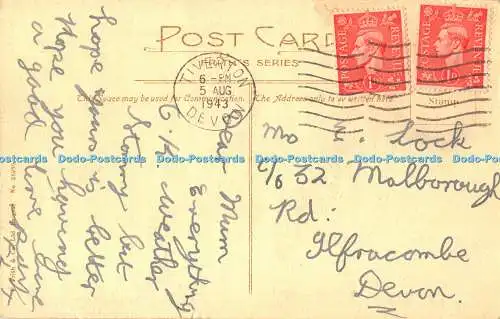 POST CARD
FRITH'S SERIES
This space may be used for Communication.
The Address only to be written here
Stamp
POSTAGE
REVENUE
1D
1D
POSTAGE
REVENUE
1D
1D
TIVERTON
6 - PM
5 AUG
1943
DEVON
Dear Mum
Everything
O.K. Weather
Stormy but
hope yours is better
Hope you having
a good time
love
Mrs E. Lock
c/o 32 Malborough
Rd:
Ilfracombe
Devon.
Dodo-Postcards Dodo-Postcards Dodo-Postcards Dodo-Postcards Dodo-Postcards